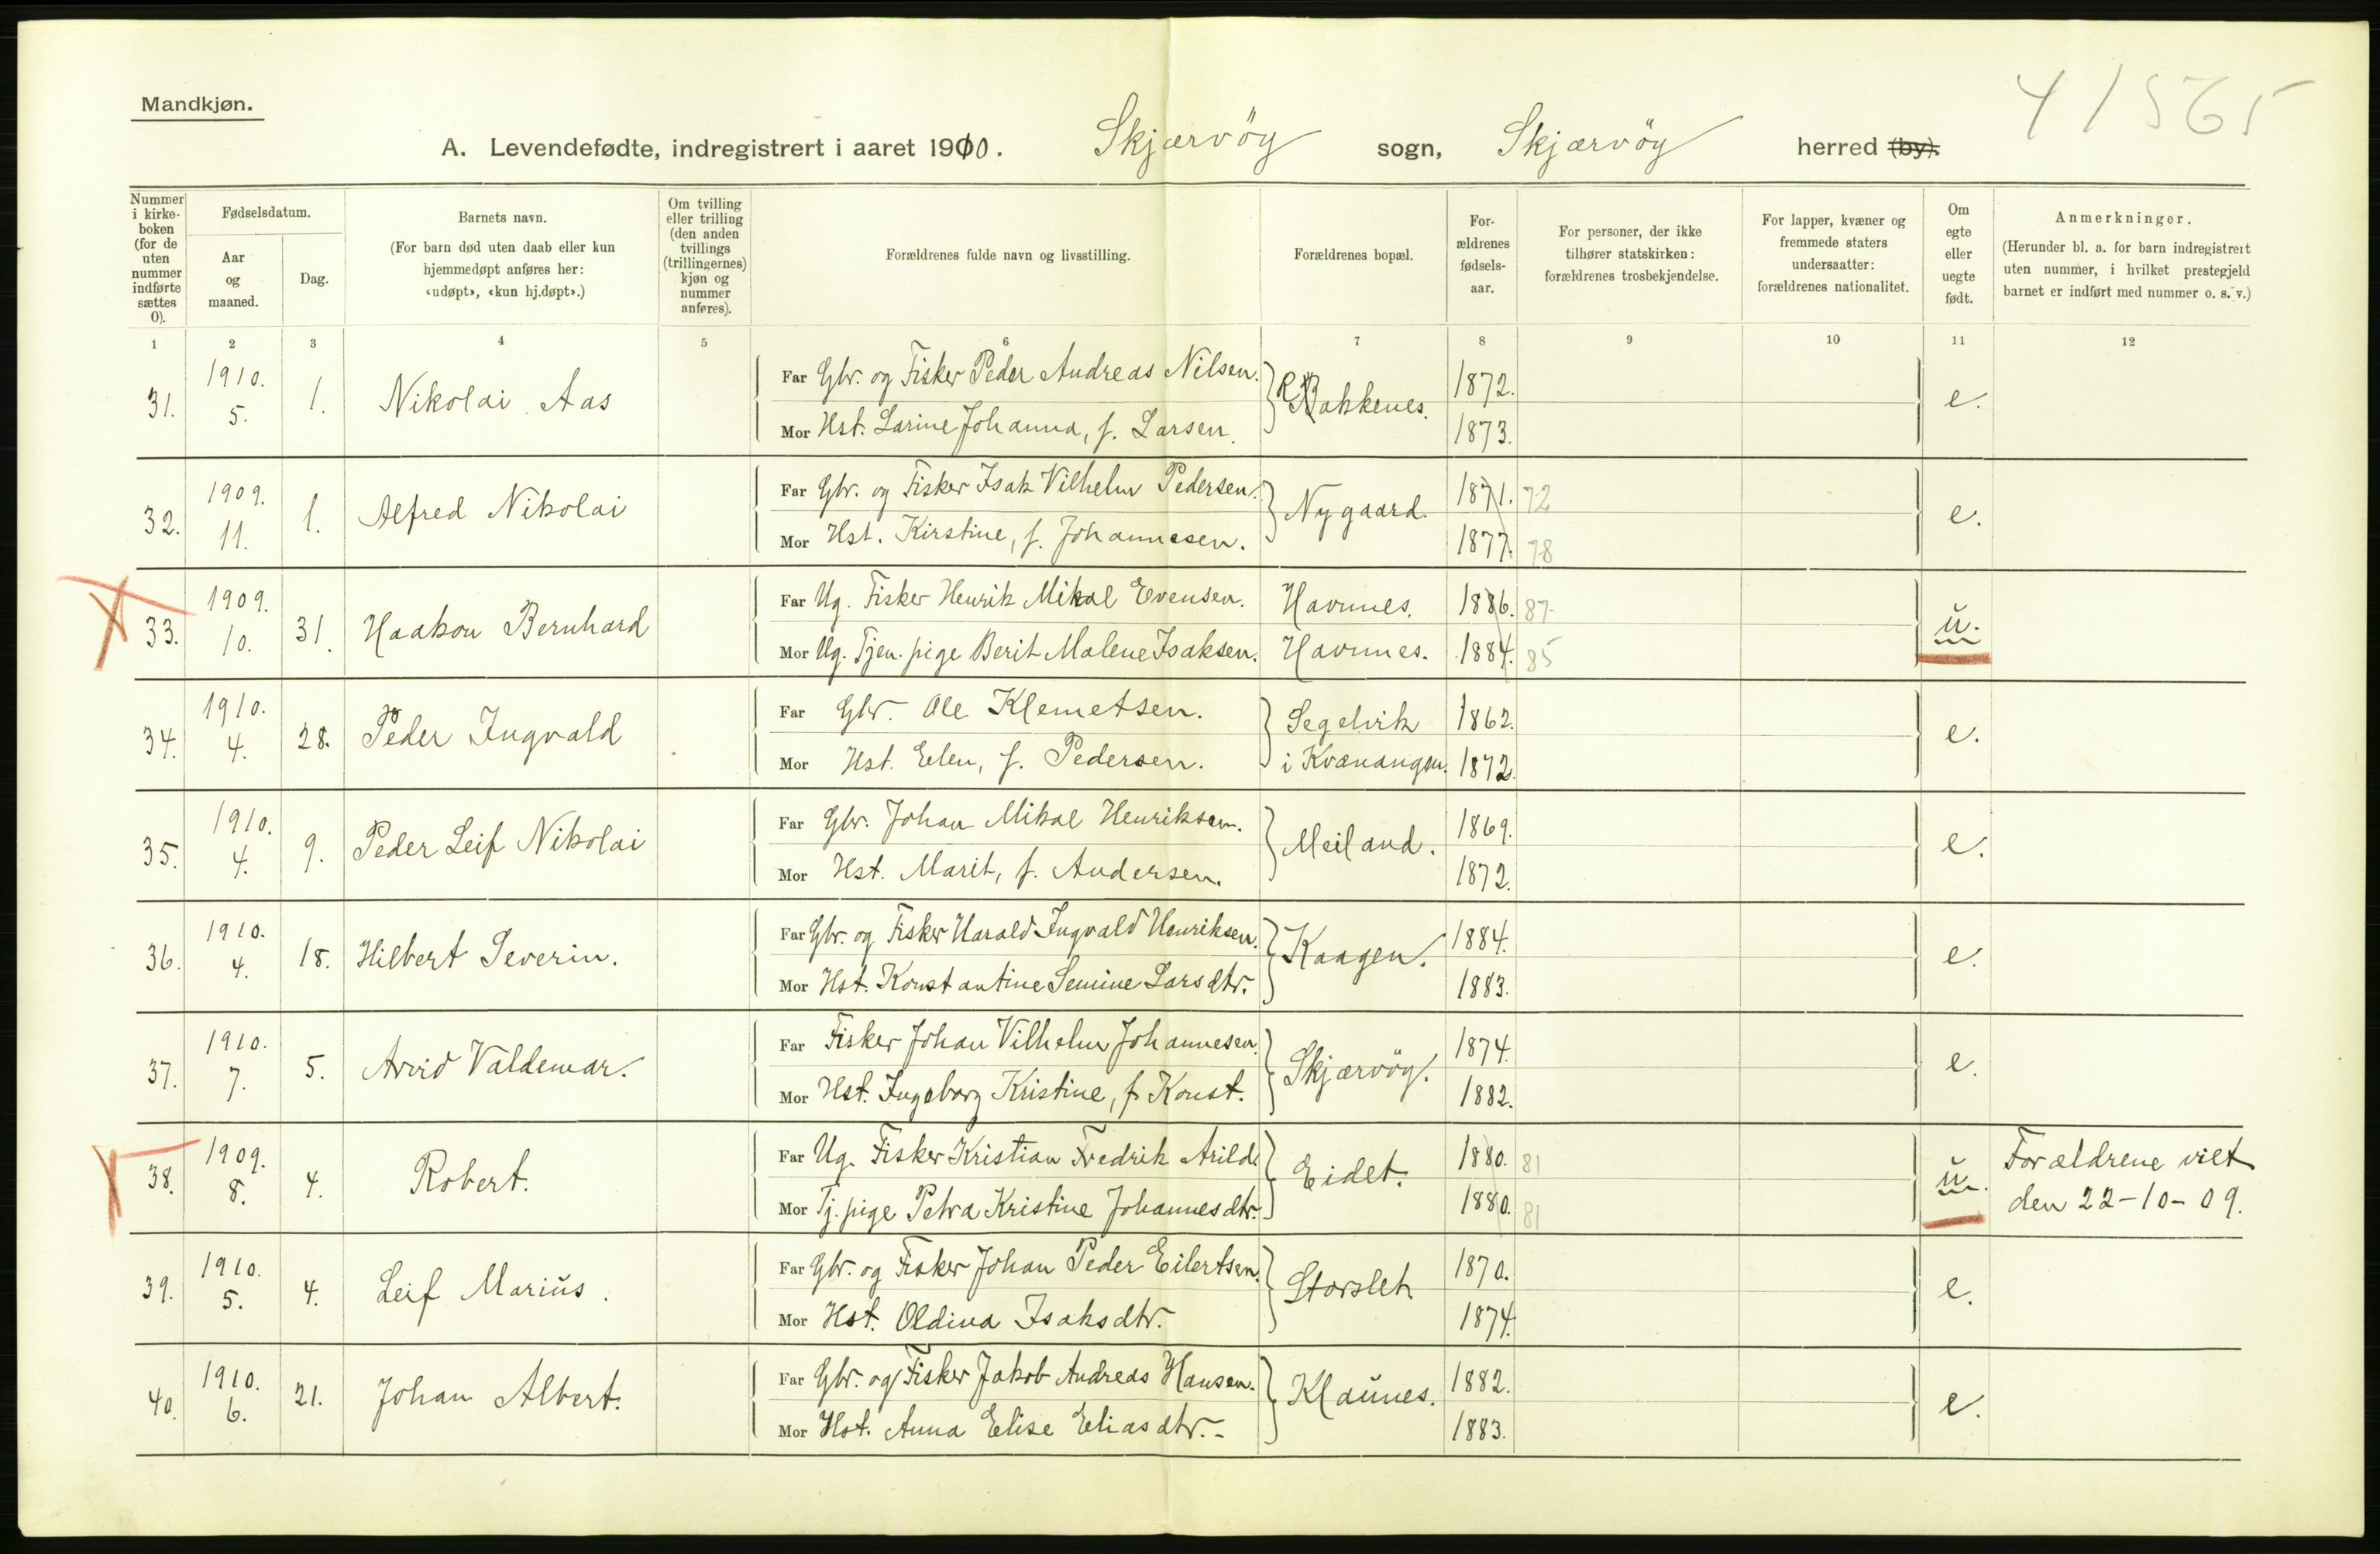 Mandkjøn.
41565
A. Levendefødte, indregistrert i aaret 1910. Skjærvöy sogn, Skjærvöy herred (by).
Nummer i kirkeboken (for de uten nummer indførte sættes 0).
Fødselsdatum.
Aar og maaned.
Dag.
Barnets navn.
(For barn død uten daab eller kun hjemmedøpt anføres her: «udøpt», «kun hj.døpt».)
Om tvilling eller trilling (den anden tvillings (trillingernes) kjøn og nummer anføres).
Forældrenes fulde navn og livsstilling.
Forældrenes bopæl.
Forældrenes fødselsaar.
For personer, der ikke tilhører statskirken: forældrenes trosbekjendelse.
For lapper, kvæner og fremmede staters undersaatter: forældrenes nationalitet.
Om egte eller uegte født.
Anmerkninger.
(Herunder bl. a. for barn indregistrert uten nummer, i hvilket prestegjeld barnet er indført med nummer o. s. v.)
1 2 3 4 5 6 7 8 9 10 11 12
31. 1910. 5. 1. Nikolai Aas
Far Gbr. og Fisker Peder Andreas Nilsen. Rakkenes. 1872. e.
Mor Hst. Larine Johanna, f. Larsen. 1873.
32. 1909. 11. 1. Alfred Nikolai
Far Gbr. og Fisker Isak Vilhelm Pedersen. Nygaard. 1871. 72 e.
Mor Hst. Kirstine, f. Johannesen. 1877. 78
33. 1909. 10. 31. Haakon Bernhard
Far Ug. Fisker Henrik Mikal Evensen. Havnnes. 1886. 87 u.
Mor Ug. Tjen. pige Berit Malene Isaksen. Havnnes. 1884. 85
34. 1910. 4. 28. Peder Ingvald
Far Gbr. Ole Klemetsen. Segelvik 1862. e.
Mor Hst. Elen, f. Pedersen. i Kvænangen. 1872.
35. 1910. 4. 9. Peder Leif Nikolai
Far Gbr. Johan Mikal Henriksen. Meiland. 1869. e.
Mor Hst. Marit, f. Andersen. 1872.
36. 1910. 4. 18. Hilbert Severin.
Far Gbr. og Fisker Harald Ingvald Henriksen. Kaagen. 1884. e.
Mor Hst. Konstantine Semine Larsdtr. 1883.
37. 1910. 7. 5. Arvid Valdemar.
Far Fisker Johan Vilhelm Johannesen. Skjærvöy. 1874. e.
Mor Hst. Ingeborg Kristine, f. Konst. 1882.
38. 1909. 8. 4. Robert.
Far Ug. Fisker Kristian Fredrik Arild. Eidet. 1880. 81 u. Forældrene viet
Mor Tj. pige Petra Kristine Johannesdtr. 1880. 81 den 22-10-09.
39. 1910. 5. 4. Leif Marius.
Far Gbr. og Fisker Johan Peder Eilertsen. Storslet. 1870. e.
Mor Hst. Oldina Isaksdtr. 1874.
40. 1910. 6. 21. Johan Albert.
Far Gbr. og Fisker Jakob Andreas Hansen. Klaunes. 1882. e.
Mor Hst. Anna Elise Eliasdtr. - 1883.